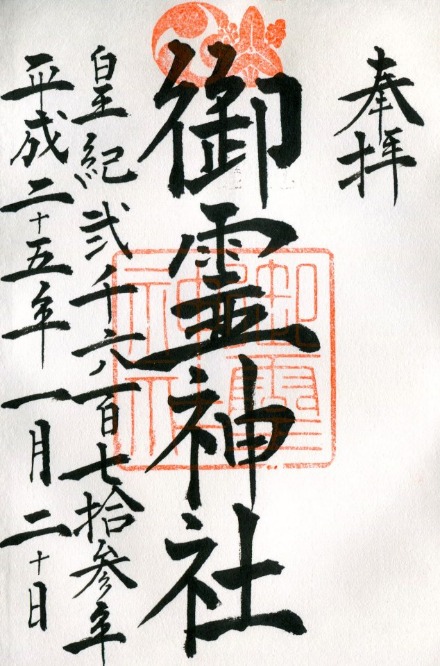 奉拝
御霊神社
皇紀弐千六百七拾参年
平成二十五年一月二十日